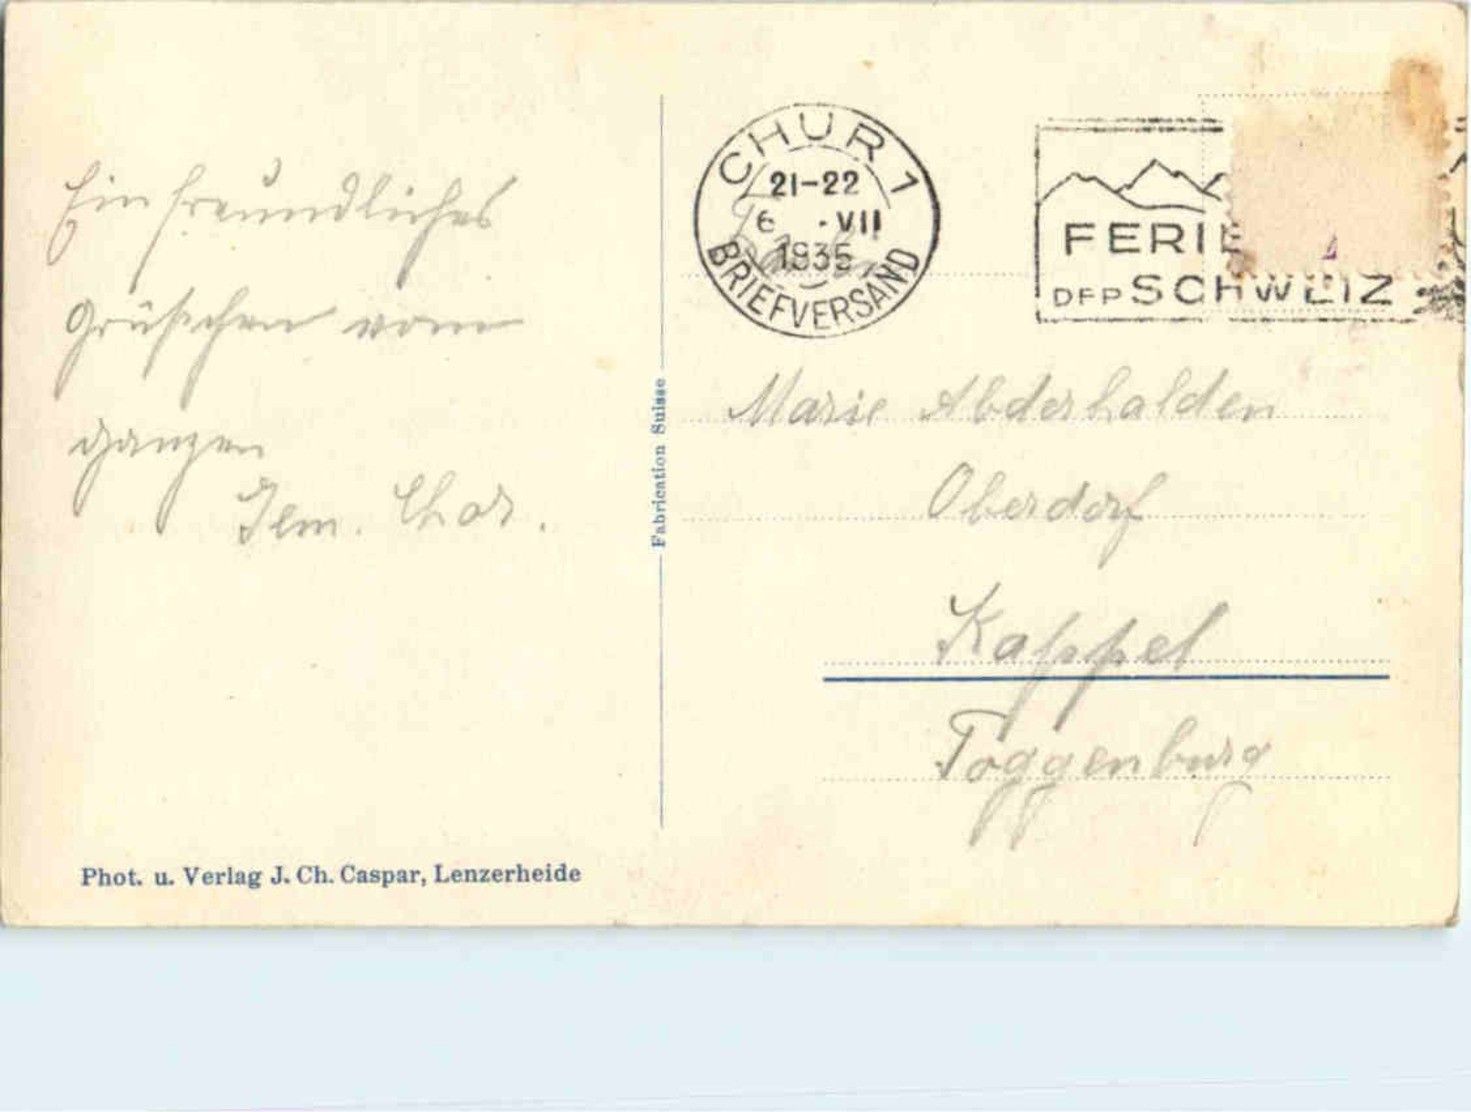 Ein freundliches
Grüßchen vom
ganzen
Gem. Chor.
Phot. u. Verlag J. Ch. Caspar, Lenzerheide
Fabrication Suisse
CHUR 1
21-22
6 .-VII
1935
BRIEFVERSAND
FERIE
DER SCHWEIZ
Marie Abderhalden
Oberdorf
Kappel
Toggenburg